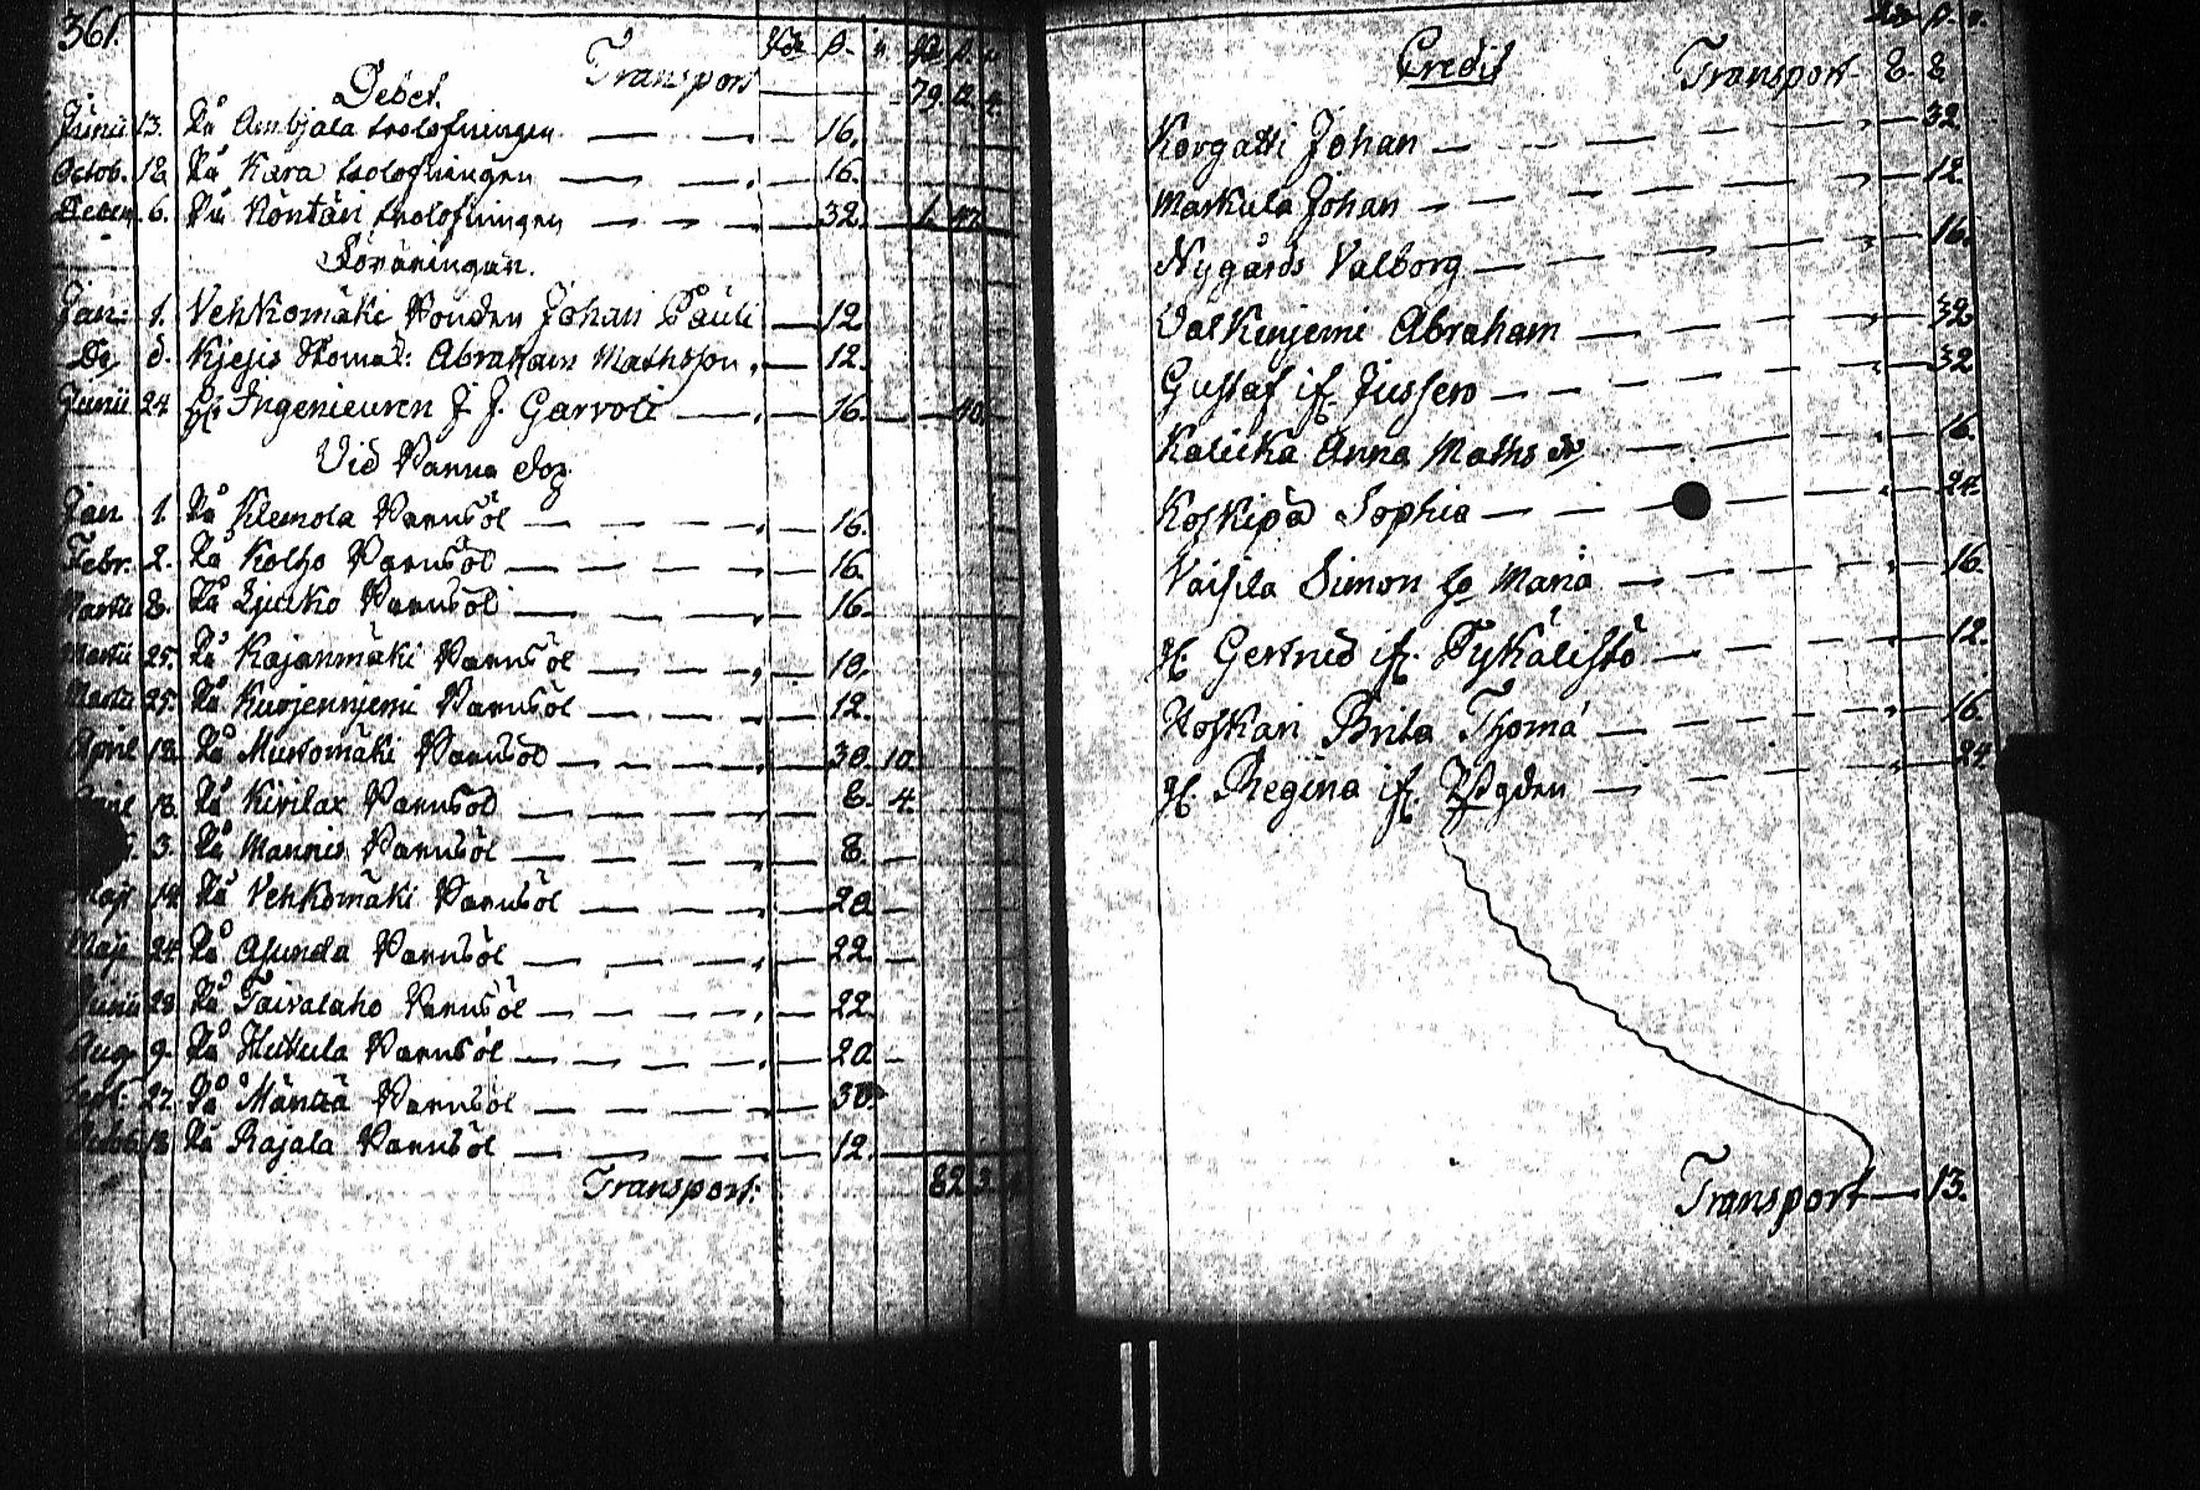 361.
Debet. Transport 79. 12. 4.
Junii 13. På Ambjala trolofningen 16.
Octob. 18. På Kara trolofningen 16.
Decem. 6. På Köntäri trolofningen 32. 1. 47.
Föräningar.
Jan: 1. Vehkomäki Bonden Johan Pauli 12.
Do d. Abraham Mathsson 12.
Junii 24. Hr Ingenieuren J. J. Garvoli 16. 40.
Vid Barns dop
Jan. 1. På Klemola Barnsöl 16.
Febr. 2. På Kolho Barnsöl 16.
Martii 8. På Barnsöl 16.
Martii 25. På Kajanmäki Barnsöl 10.
Martii 25. På Kurjennjemi Barnsöl 12.
April 18. På Mustomäki Barnsöl 30. 10.
April 18. På Kivilax Barnsöl 8. 4.
3. På Mannis Barnsöl 8.
Maji 14. På Vehkomäki Barnsöl 20.
Maji 24. På Asunda Barnsöl 22.
Junii 28. På Taivalaho Barnsöl 22.
Aug. 9. På Huttula Barnsöl 20.
Sept: 27. På Mänttä Barnsöl 30.
Octob. 18. På Rajala Barnsöl 12.
Transport: 82. 3.
Credit Transport 8. 8.
Korgatti Johan 32.
Markula Johan 12.
Nygårds Valborg 16.
Valkenjemi Abraham 32.
Gustaf if. Jussero 32
Kalicka Anna Maths dr 16.
Koskipä Sophia 24.
Väisilä Simon Maria 16.
H. Gertrud if. Pykälistö 12.
Koskari Brita Thomä 16.
H. Regina if. 24.
Transport 13.